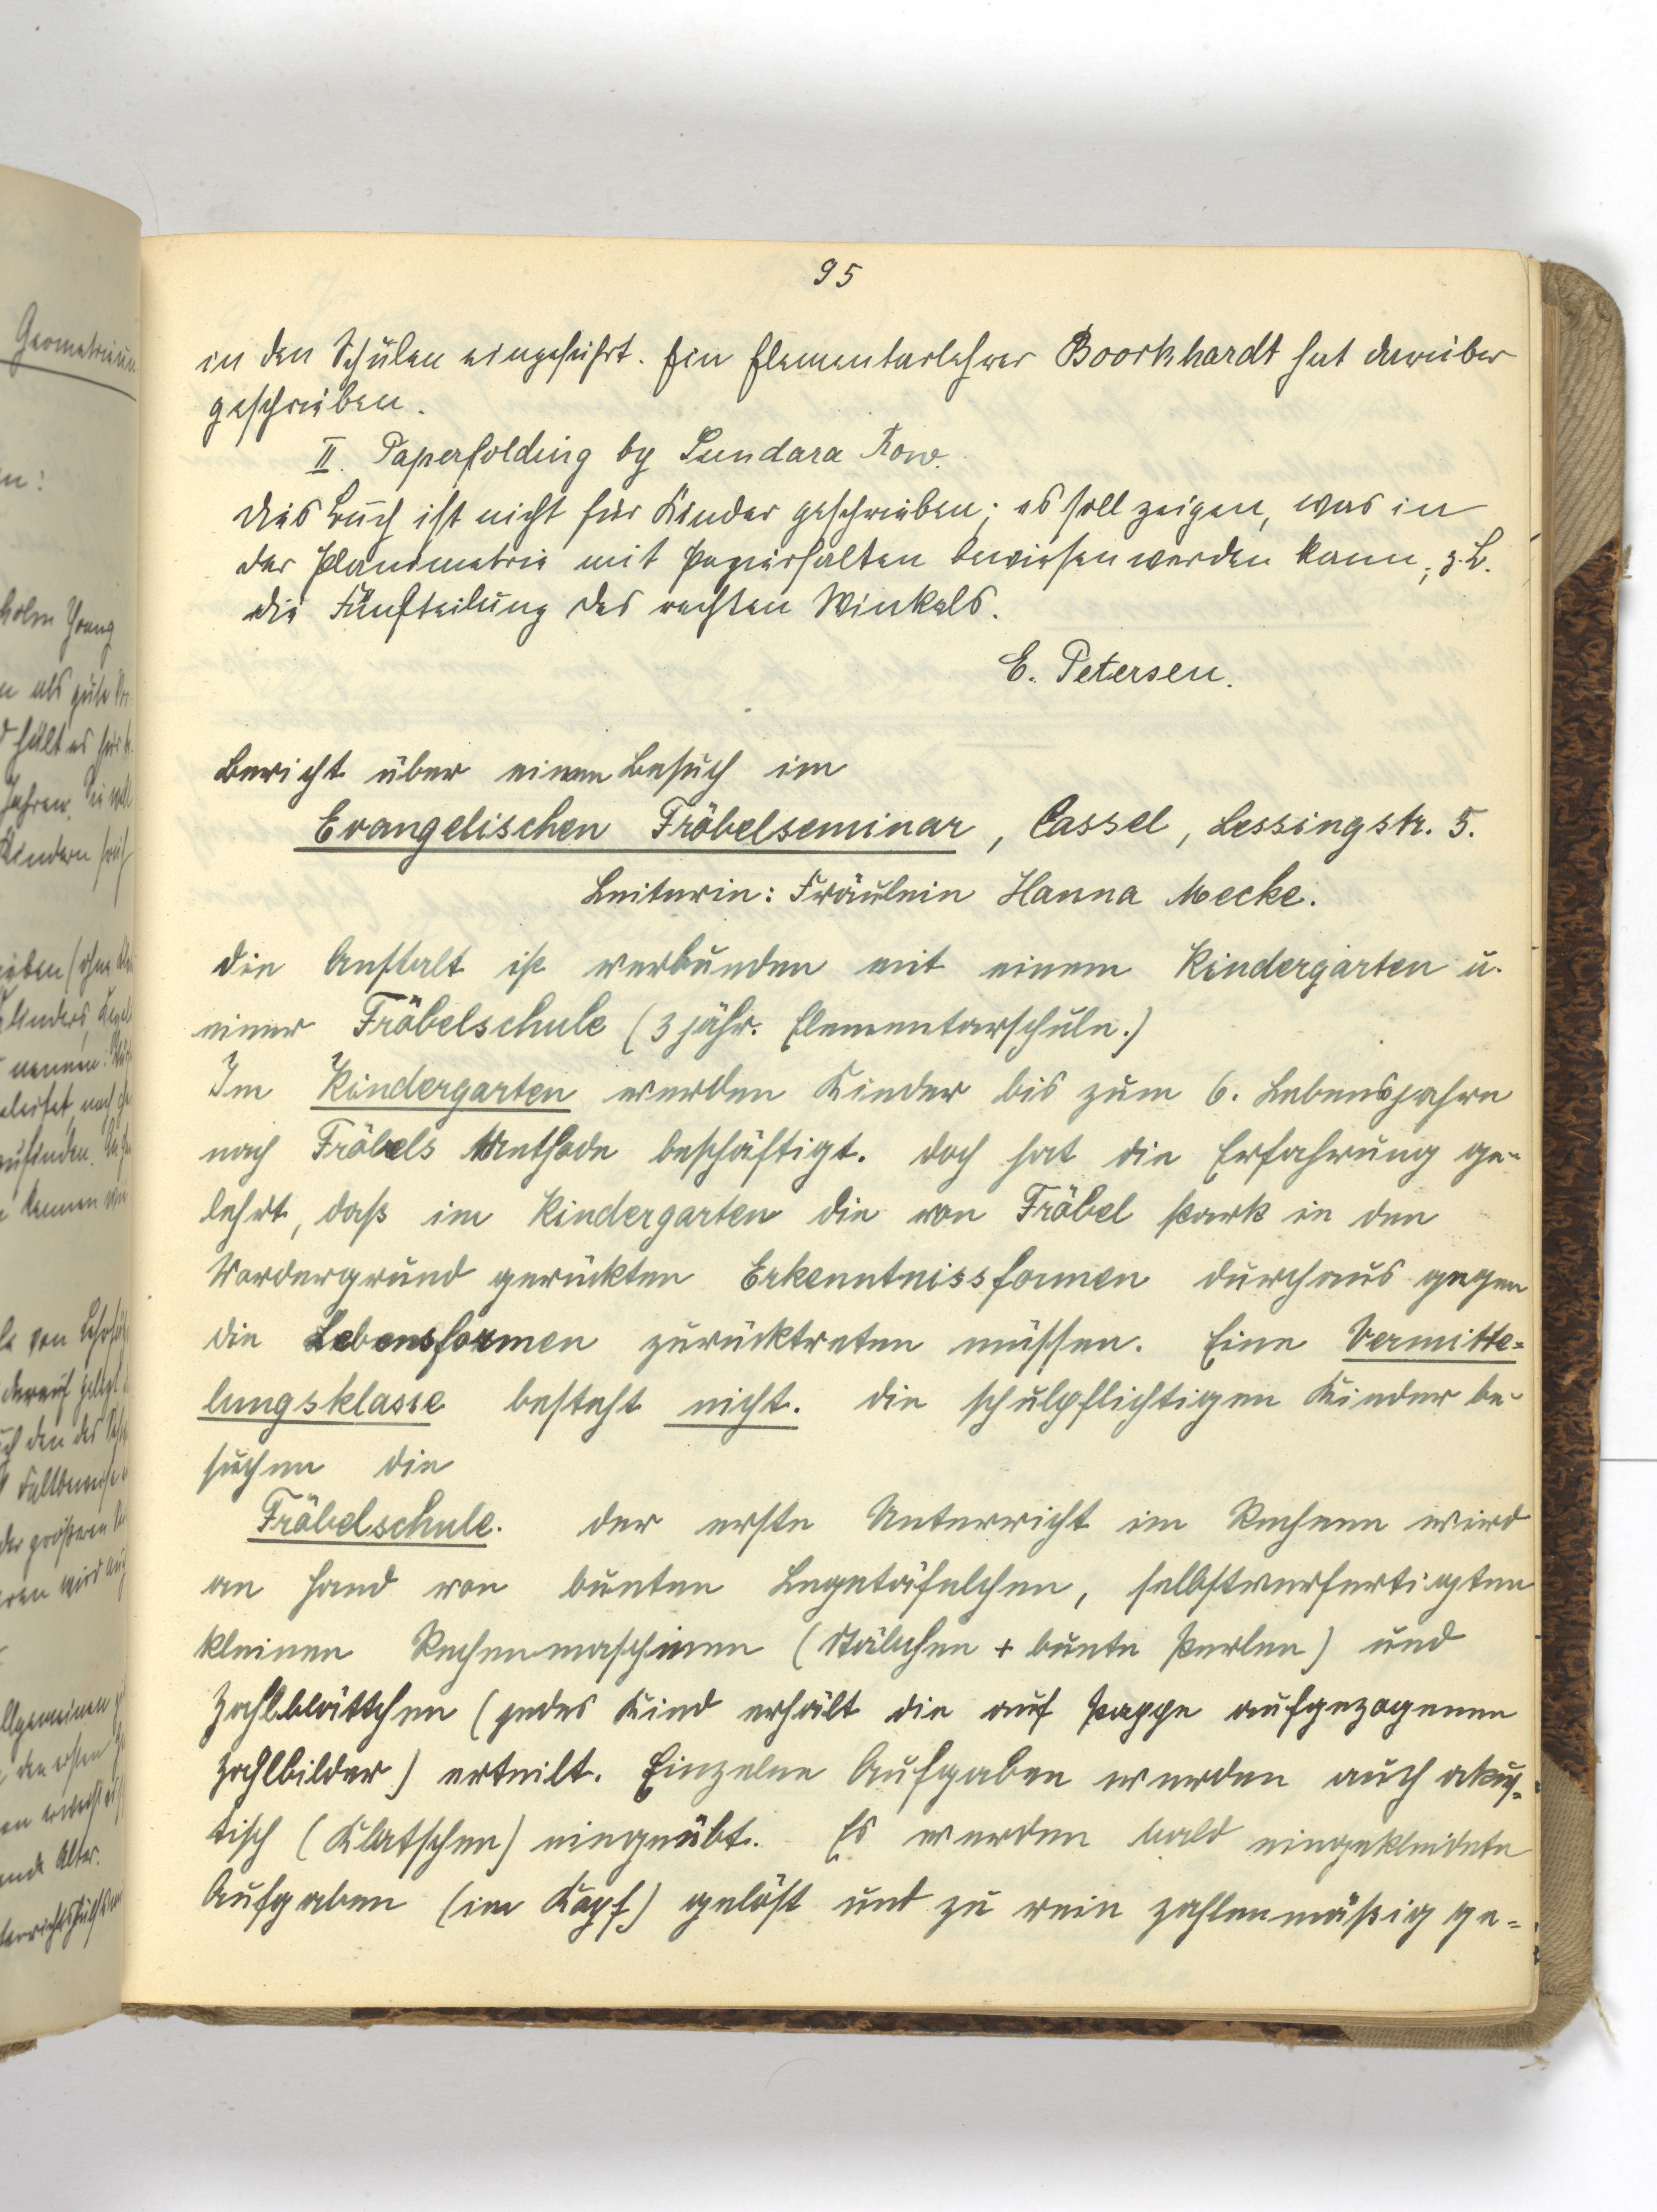 95
in den Schulen eingeführt. Ein Elementarlehrer Boorkhardt hat darüber
geschrieben.
II. Paperfolding by Sundara Row.
Dies Buch ist nicht für Kinder geschrieben; es soll zeigen, was in
der Planimetrie mit Papierfalten bewiesen werden kann; z.B.
die Fünfteilung des rechten Winkels.
E. Petersen.
Bericht über einen Besuch im
Evangelischen Fröbelseminar, Cassel, Lessingstr. 5.
Leiterin: Fräulein Hanna Mecke.
Die Anstalt ist verbunden mit einem Kindergarten u.
einer Fröbelschule (3 jähr. Elementarschule.)
Im Kindergarten werden Kinder bis zum 6. Lebensjahre
nach Fröbels Methode beschäftigt. Doch hat die Erfahrung ge-
lehrt, daß im Kindergarten die von Fröbel stark in den
Vordergrund gerückten Erkenntnissformen durchaus gegen
die Lebensformen zurücktreten müssen. Eine Vermitte=
lungsklasse besteht nicht. Die schulpflichtigen Kinder be-
suchen die
Fröbelschule. Der erste Unterricht im Rechnen wird
an Hand von bunten Legetäfelchen, selbstverfertigten
kleinen Rechenmaschinen (Stäbchen + bunte Perlen) und
Zahlblättchen (jedes Kind erhält die auf Pappe aufgezogenen
Zahlbilder) erteilt. Einzelne Aufgaben werden auch akus=
tisch (Klatschen) eingeübt. Es werden bald eingekleidete
Aufgaben (im Kopf) gelöst und zu rein zahlenmäßig ge=
Geometrieun
n: